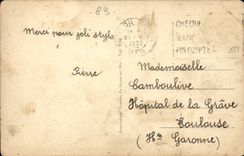 83
Merci pour joli stylo
Pierre
CHEQUE
Mademoiselle
Camboulive
Hôpital de la Grâve
Toulouse
(Hte Garonne)